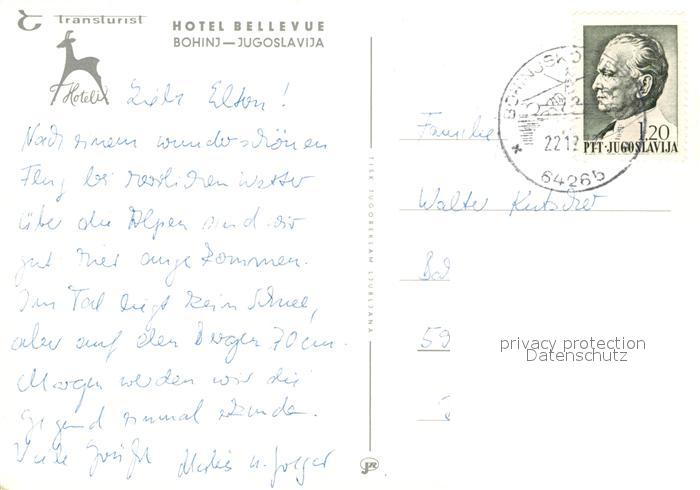 Transturist
HOTEL BELLEVUE
BOHINJ — JUGOSLAVIJA
Hoteli
Liebe Eltern!
Nach einem wunderschönen
Flug bei herrlichem Wetter
über die Alpen sind wir
gut hier angekommen.
Im Tal liegt kein Schnee,
aber auf den Bergen 70 cm.
Morgen werden wir die
Gegend einmal erkunden.
Viele Grüße u. Holger
TISK JUGOREKLAM LJUBLJANA
BOHINJSKO
22.12
64265
1.20
PTT·JUGOSLAVIJA
Familie
Walter Kutscher
59
privacy protection
Datenschutz